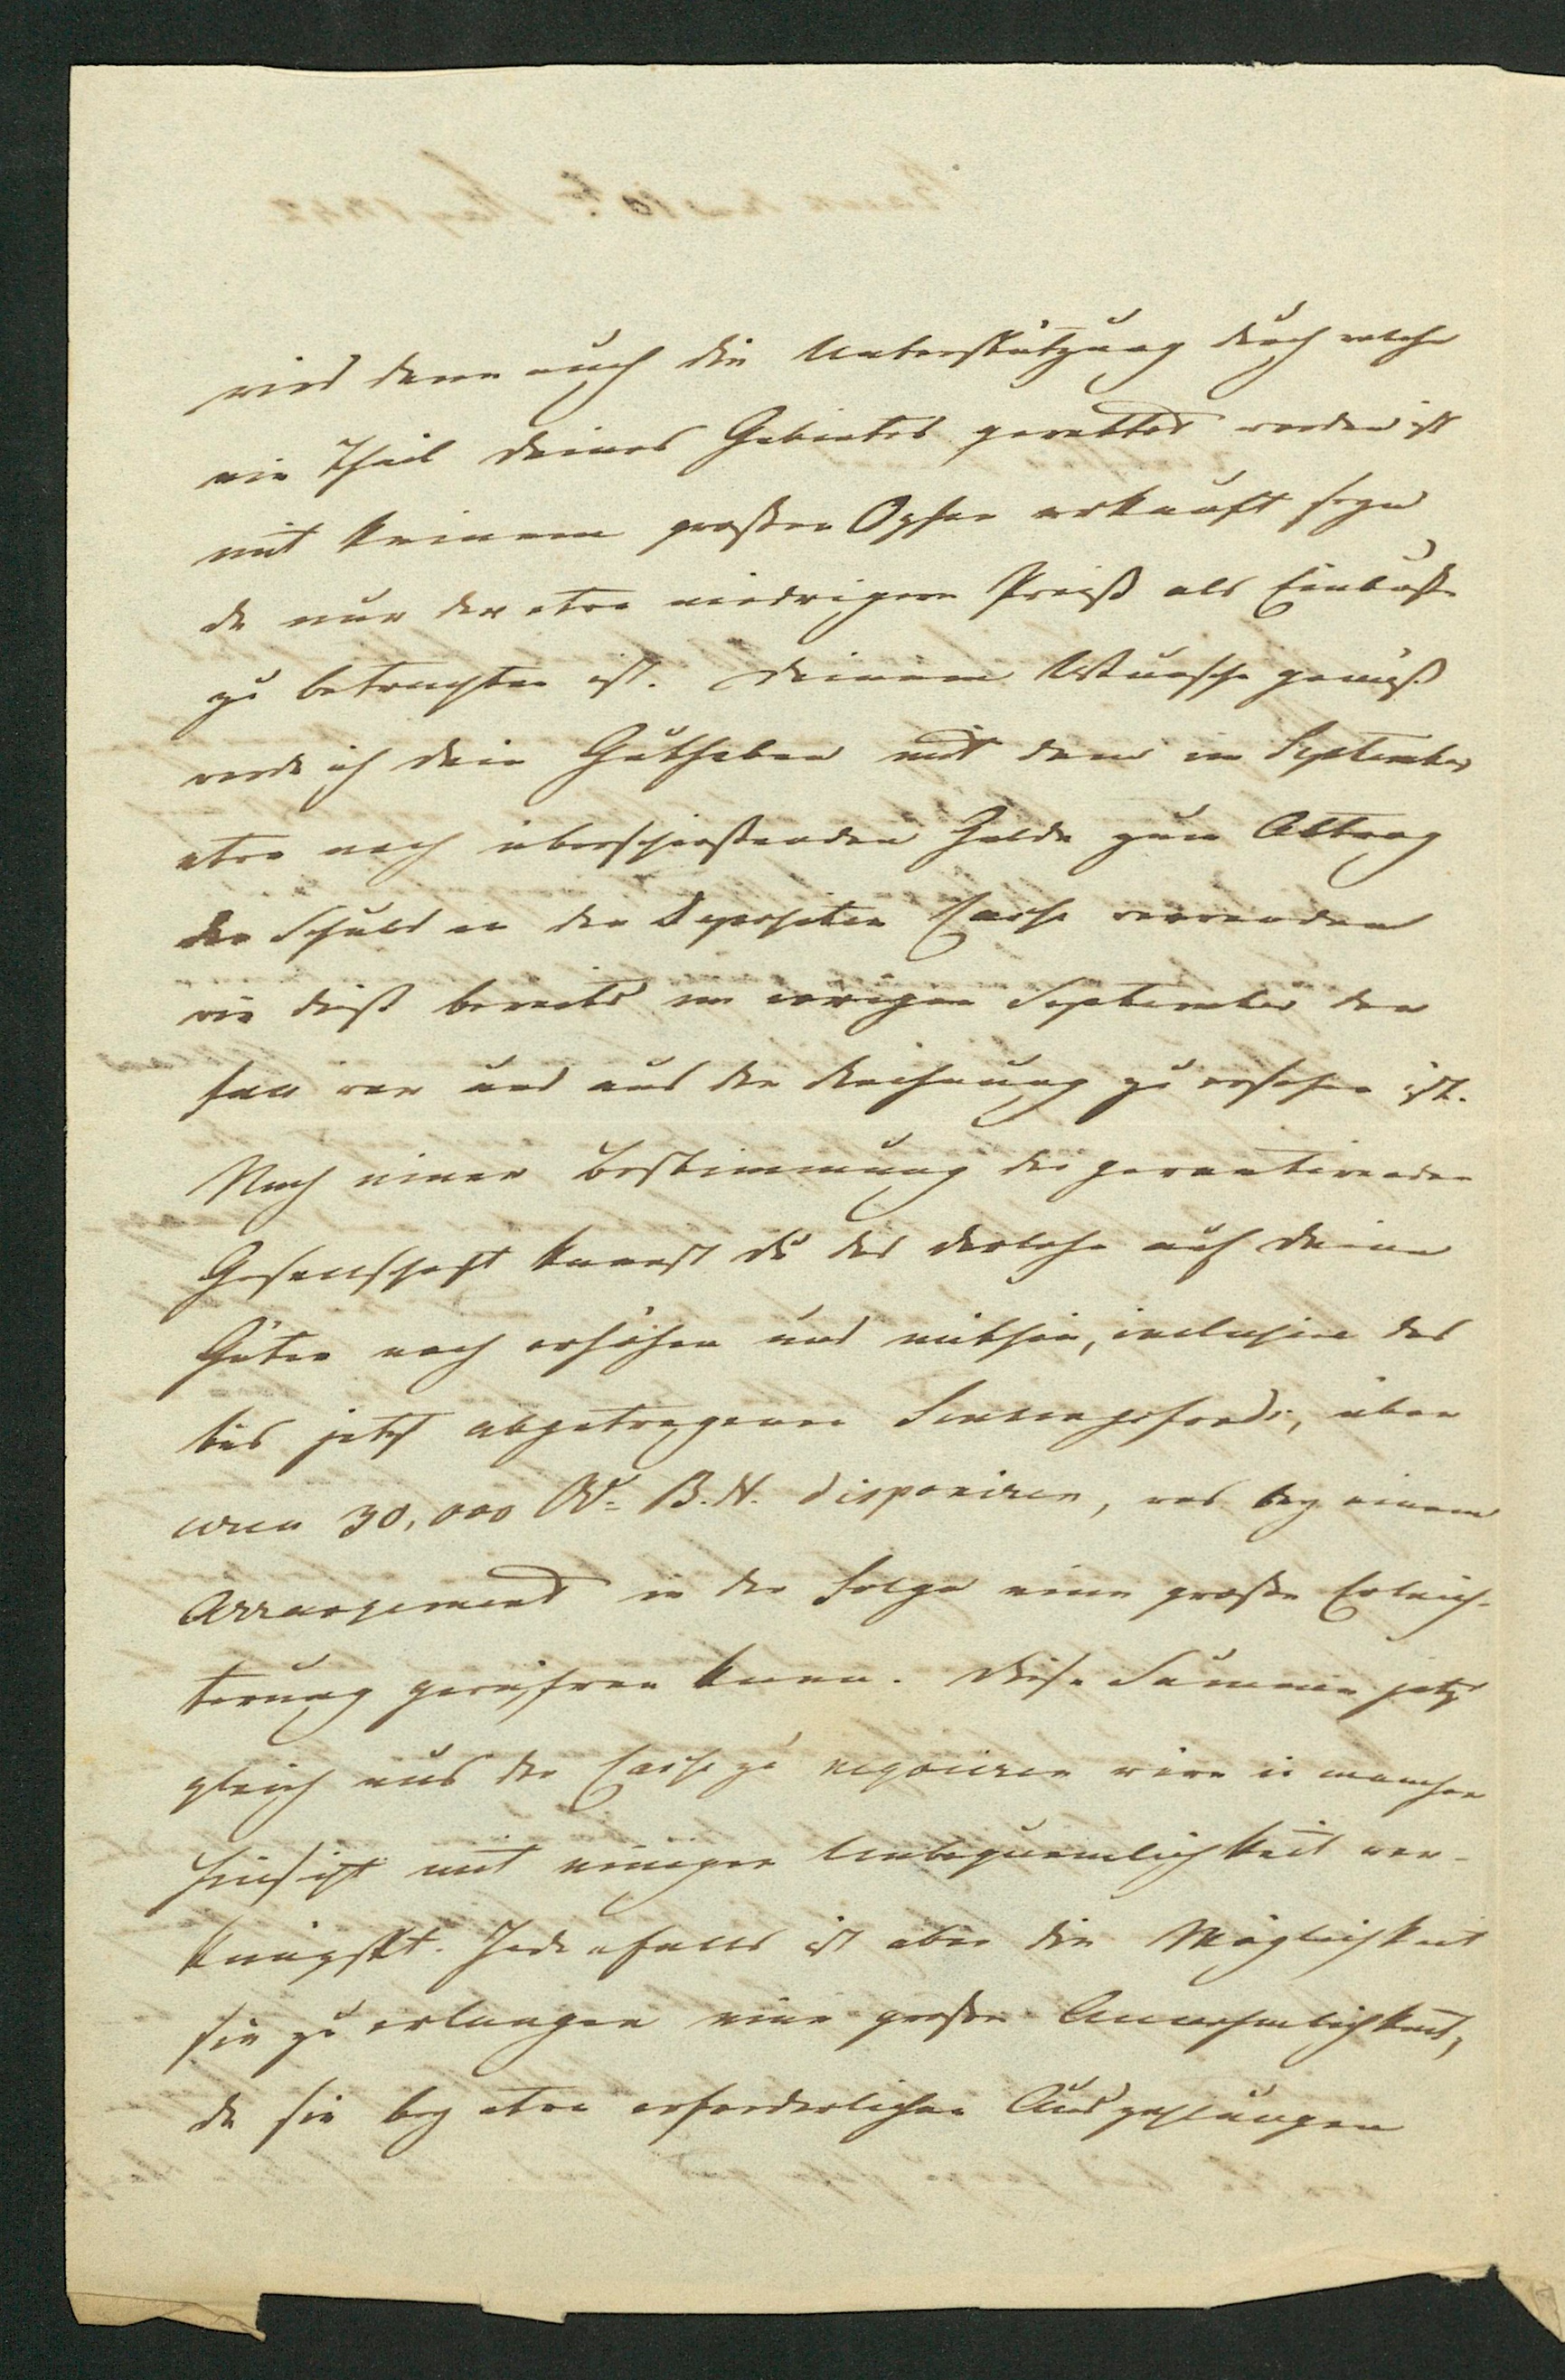 wird dann auch die Unterstützung durch welche
ein Theil deines Gebietes gerettet worden ist
mit keinem großen Opfer erkauft seyn
da nur der etwa niedrigere Preiß als Einbuße
zu betrachten ist. Deinem Wunsche gemäß
werde ich dein Guthaben mit dem im September
etwa noch überschießenden Gelde zum Abtrag
der Schuld an der Depositen Casse verwenden
wie dieß bereits im vorigen September der
Fall war und aus der Rechnung zu ersehen ist.
Nach einer Bestimmung der garantirenden
Gesellschaft kannst du das Darlehn auf deine
Güter noch erhöhen und mithin, inclusive des
bis jetzt abgetragenen Senkungsfonds, über
circa 30,000 B. N. disponiren, was bey einem
Arrangement in der Folge eine große Erleich-
terung gewähren kann. Diese Summen jetzt
gleich aus der Casse zu negociiren wäre in mancher
Hinsicht mit einiger Unbequemlichkeit ver-
knüpft. Jedenfalls ist aber die Möglichkeit
sie zu erlangen eine große Annehmlichkeit,
da sie bey etwa erforderlichen Auszahlungen